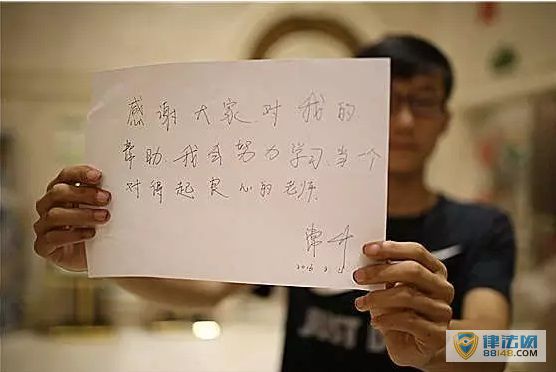 感谢大家对我的
帮助、我会努力学习、当个
对得起良心的老师.
JUST DO
律法网
88148.COM